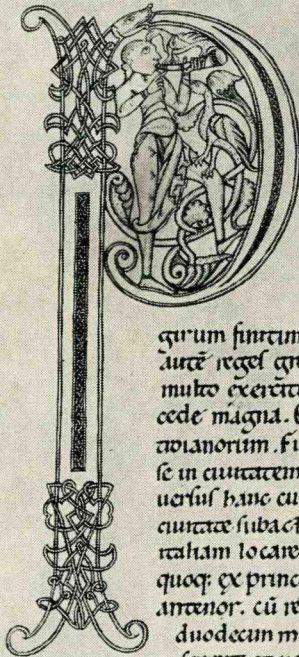 P
girum finitim
autē reges gre
multo exercit
cede magna.
troianorum. Fu
se in ciuitatem
uersus hanc cu
ciuitate subact
italiam locare
quoq; ex princ
antenor. cū re
duodecim m